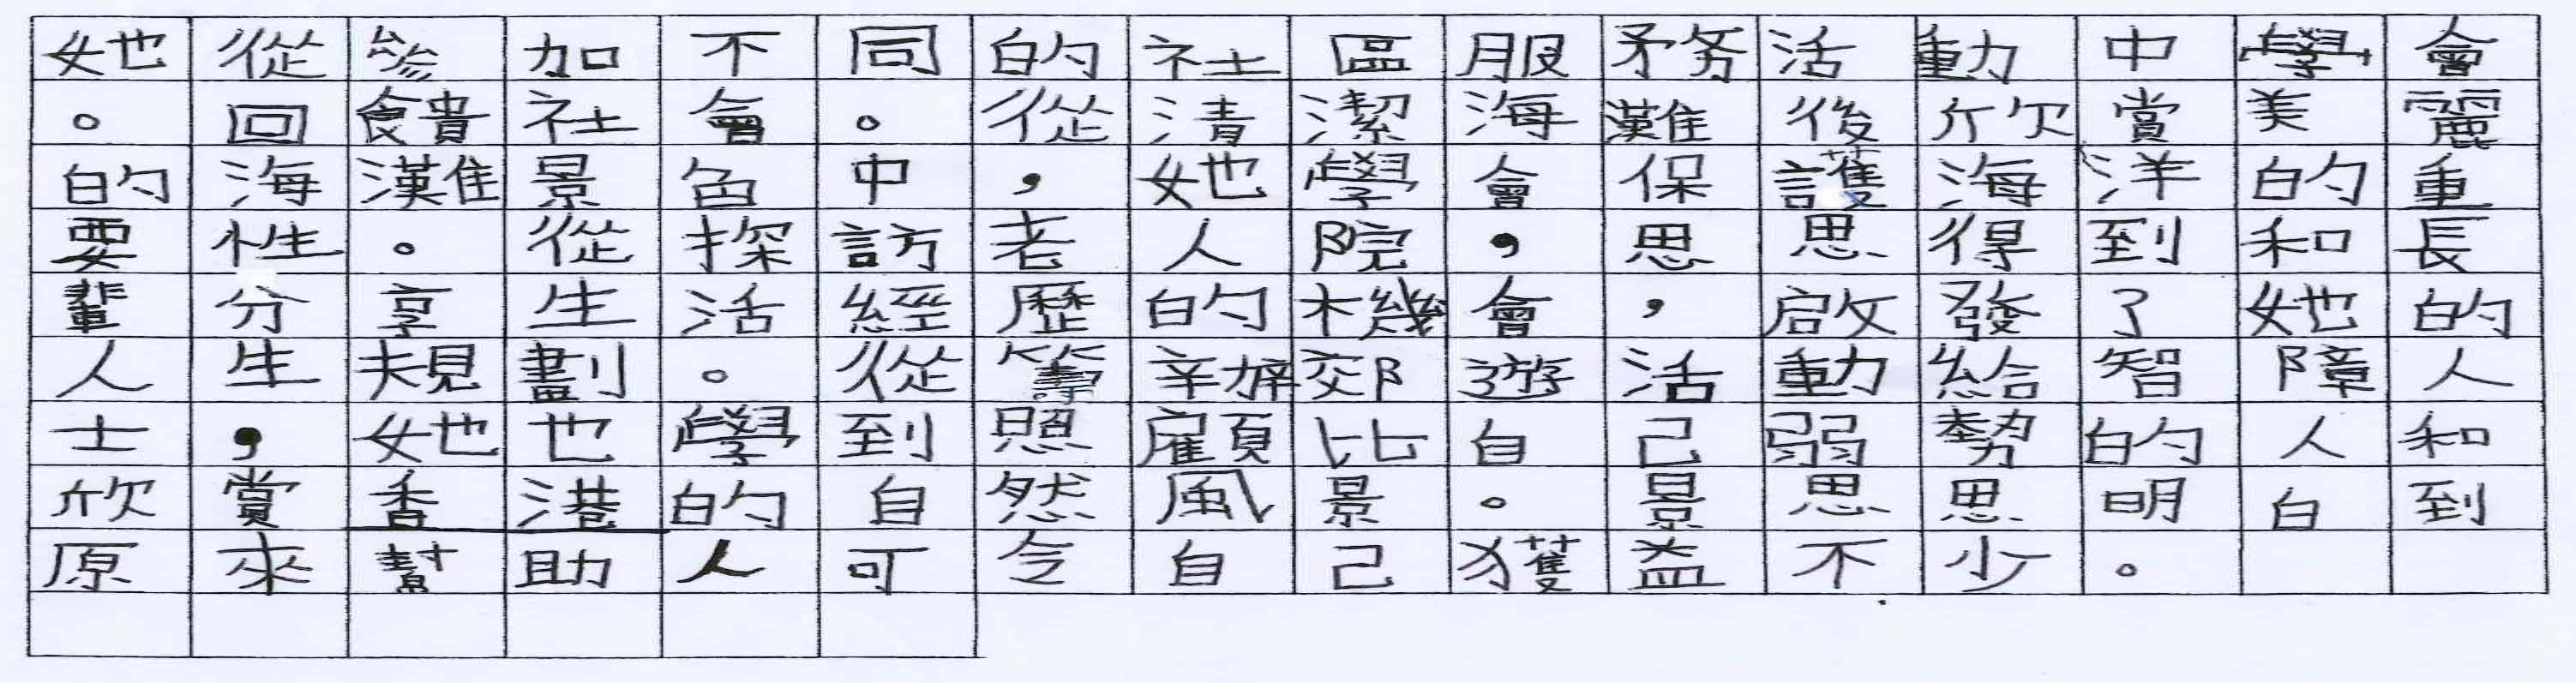 她從參加不同的社區服務活動中學會
。回饋社會。從清潔海灘後欣賞美麗
的海灘景色中，她學會保護海洋的重
要性。從探訪老人院，思思得到和長
輩分享生活經歷的機會，啟發了她的
人生規劃。從籌辦郊遊活動給智障人
士，她也學到照顧比自己弱勢的人和
欣賞香港的自然風景。景思思明白到
原來幫助人可令自己獲益不少。